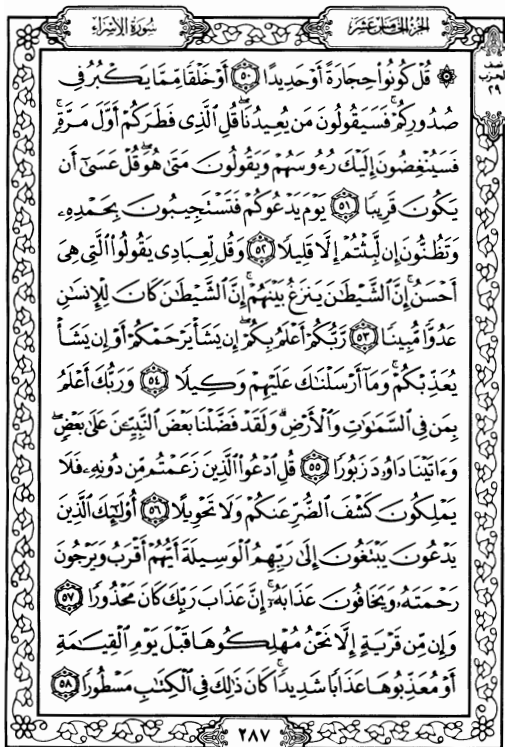 الجزء الخامس عشر
سورة الإسراء
نصف
الحزب
٢٩
۞ قُلْ كُونُوا۟ حِجَارَةً أَوْ حَدِيدًا ٥٠ أَوْ خَلْقًا مِّمَّا يَكْبُرُ فِى
صُدُورِكُمْ ۚ فَسَيَقُولُونَ مَن يُعِيدُنَا ۖ قُلِ ٱلَّذِى فَطَرَكُمْ أَوَّلَ مَرَّةٍ ۚ
فَسَيُنْغِضُونَ إِلَيْكَ رُءُوسَهُمْ وَيَقُولُونَ مَتَىٰ هُوَ ۖ قُلْ عَسَىٰٓ أَن
يَكُونَ قَرِيبًا ٥١ يَوْمَ يَدْعُوكُمْ فَتَسْتَجِيبُونَ بِحَمْدِهِۦ
وَتَظُنُّونَ إِن لَّبِثْتُمْ إِلَّا قَلِيلًا ٥٢ وَقُل لِّعِبَادِى يَقُولُوا۟ ٱلَّتِى هِىَ
أَحْسَنُ ۚ إِنَّ ٱلشَّيْطَـٰنَ يَنزَغُ بَيْنَهُمْ ۚ إِنَّ ٱلشَّيْطَـٰنَ كَانَ لِلْإِنسَـٰنِ
عَدُوًّا مُّبِينًا ٥٣ رَّبُّكُمْ أَعْلَمُ بِكُمْ ۖ إِن يَشَأْ يَرْحَمْكُمْ أَوْ إِن يَشَأْ
يُعَذِّبْكُمْ ۚ وَمَآ أَرْسَلْنَـٰكَ عَلَيْهِمْ وَكِيلًا ٥٤ وَرَبُّكَ أَعْلَمُ
بِمَن فِى ٱلسَّمَـٰوَٰتِ وَٱلْأَرْضِ ۗ وَلَقَدْ فَضَّلْنَا بَعْضَ ٱلنَّبِيِّـۧنَ عَلَىٰ بَعْضٍ ۖ
وَءَاتَيْنَا دَاوُۥدَ زَبُورًا ٥٥ قُلِ ٱدْعُوا۟ ٱلَّذِينَ زَعَمْتُم مِّن دُونِهِۦ فَلَا
يَمْلِكُونَ كَشْفَ ٱلضُّرِّ عَنكُمْ وَلَا تَحْوِيلًا ٥٦ أُو۟لَـٰٓئِكَ ٱلَّذِينَ
يَدْعُونَ يَبْتَغُونَ إِلَىٰ رَبِّهِمُ ٱلْوَسِيلَةَ أَيُّهُمْ أَقْرَبُ وَيَرْجُونَ
رَحْمَتَهُۥ وَيَخَافُونَ عَذَابَهُۥٓ ۚ إِنَّ عَذَابَ رَبِّكَ كَانَ مَحْذُورًا ٥٧
وَإِن مِّن قَرْيَةٍ إِلَّا نَحْنُ مُهْلِكُوهَا قَبْلَ يَوْمِ ٱلْقِيَـٰمَةِ
أَوْ مُعَذِّبُوهَا عَذَابًا شَدِيدًا ۚ كَانَ ذَٰلِكَ فِى ٱلْكِتَـٰبِ مَسْطُورًا ٥٨
٢٨٧